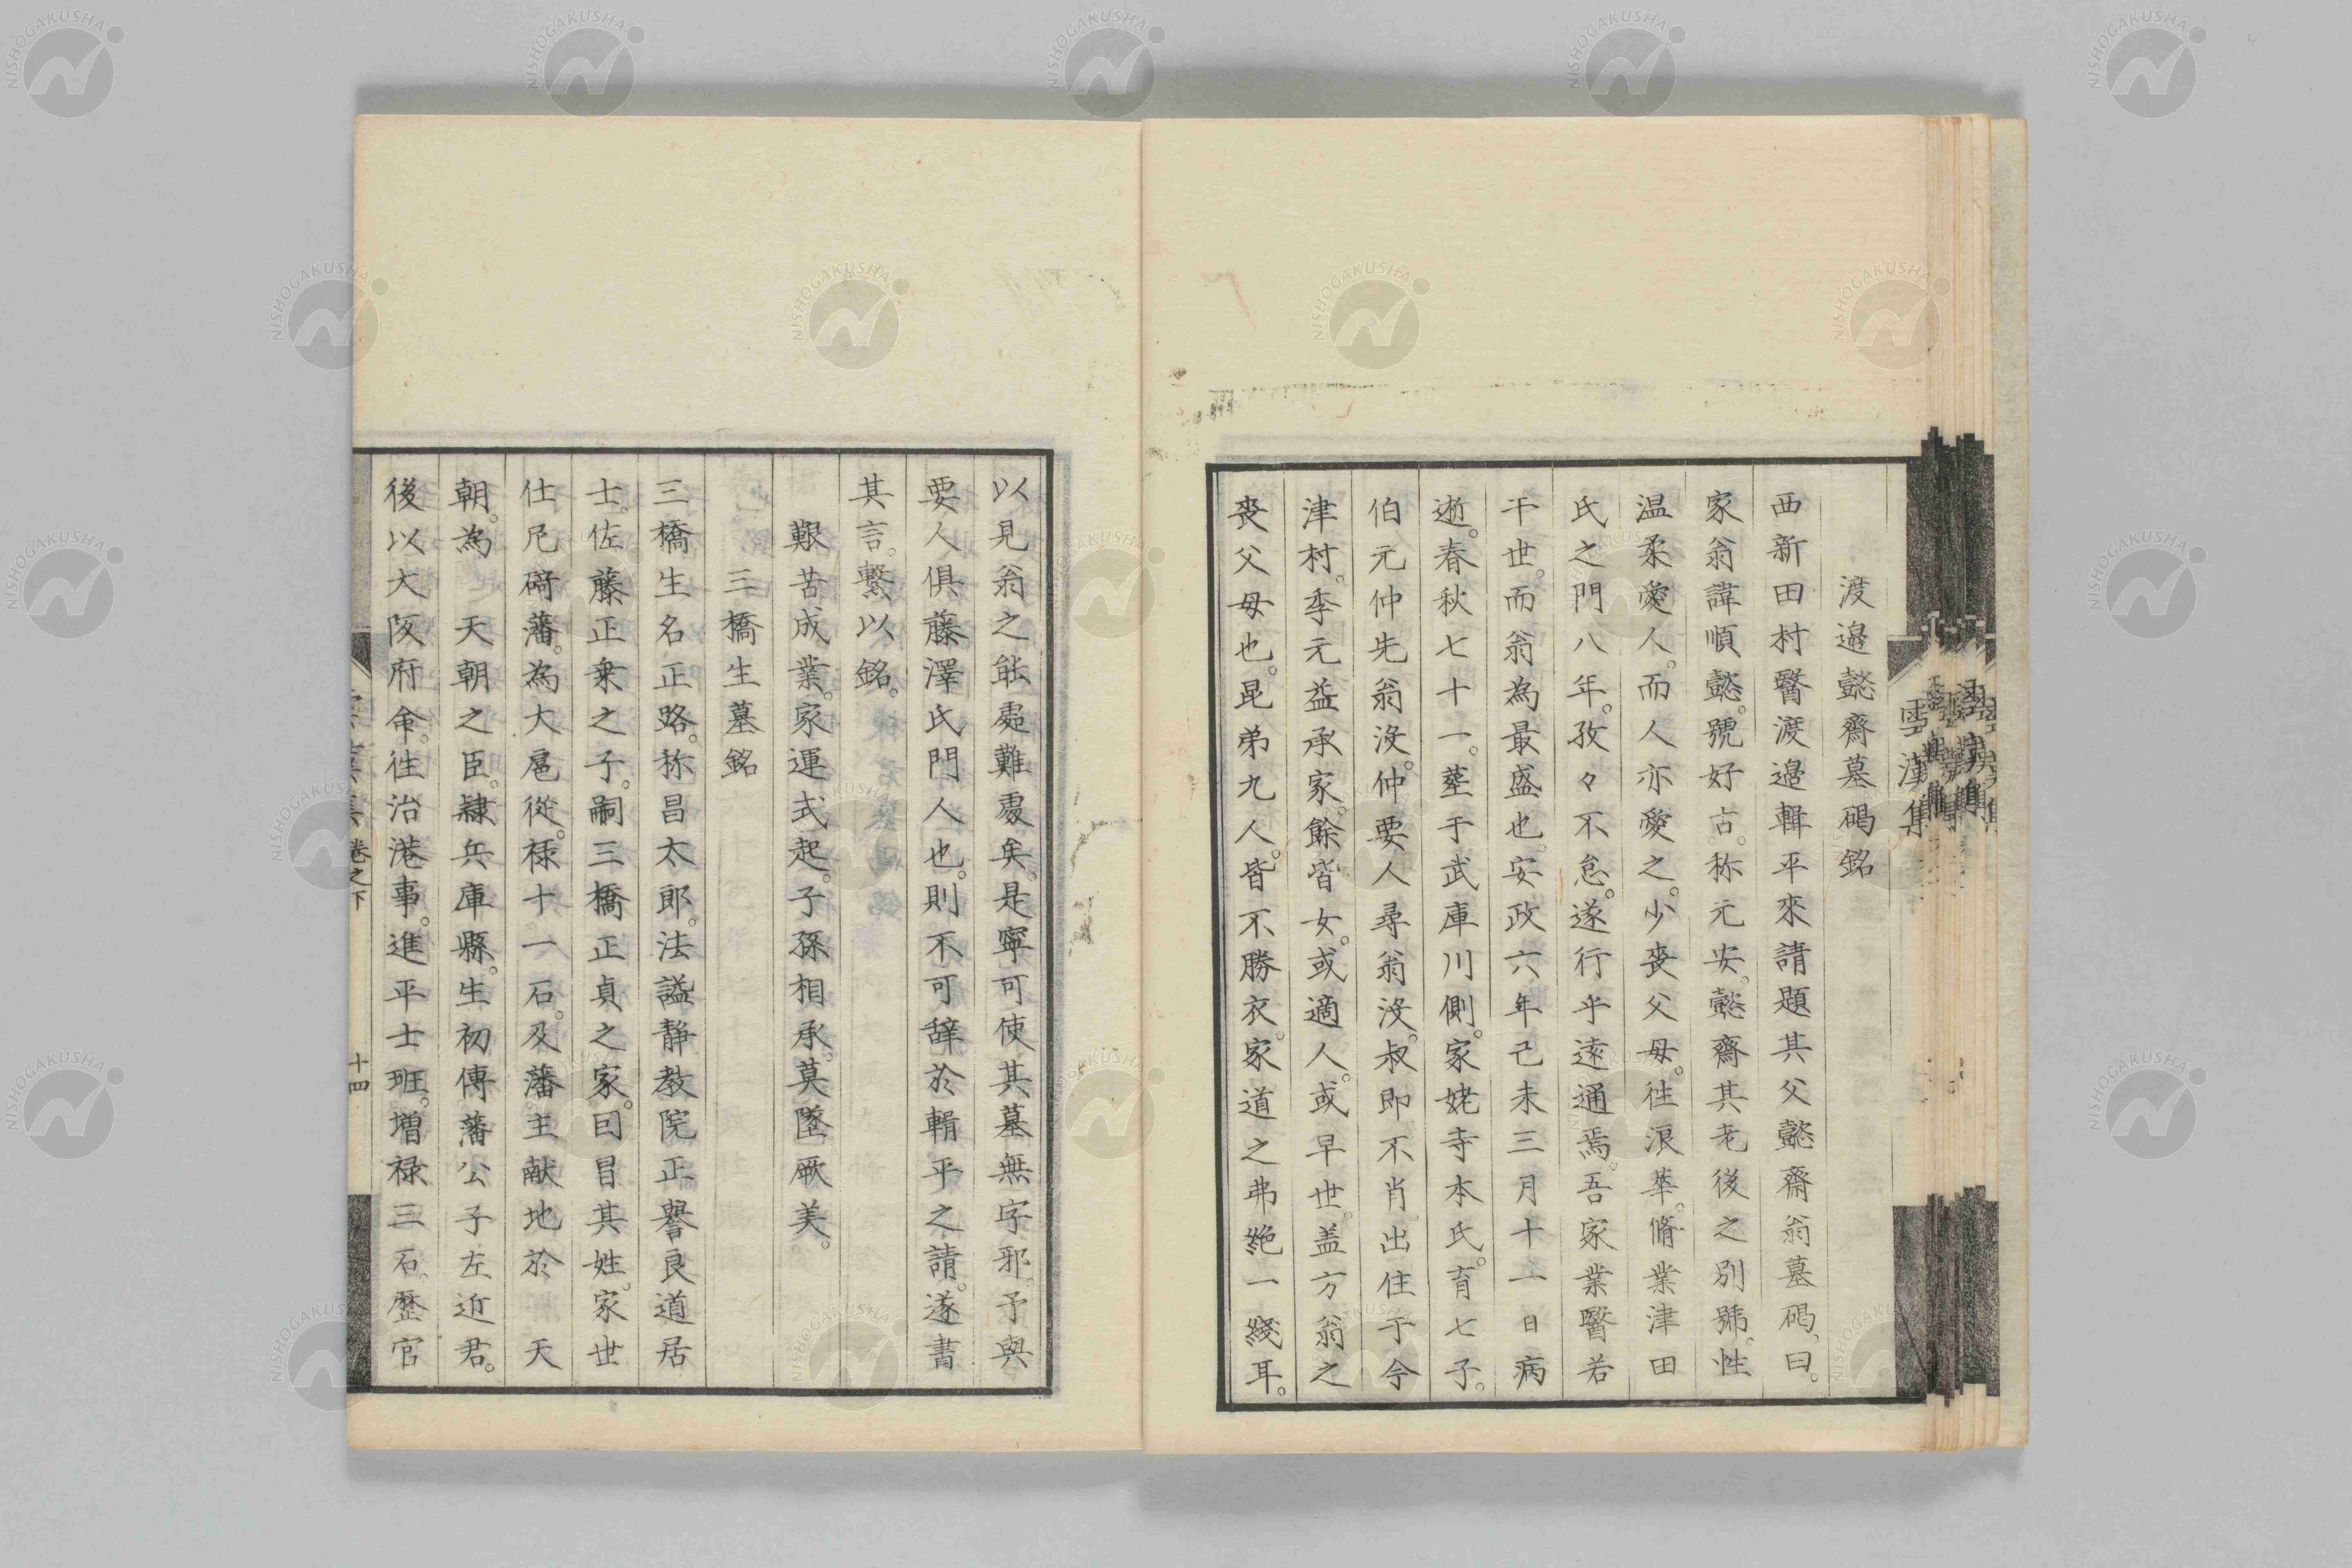 渡邉懿齋墓碣銘
西新田村醫渡邉輯平來請題其父懿齋翁墓碣、曰。
家翁諱順懿。號好古。称元安。懿齋其老後之別號。性
温柔愛人。而人亦愛之。少喪父母。徃浪華。脩業津田
氏之門八年。孜々不怠。遂行乎遠通焉。吾家業醫若
干世。而翁為最盛也。安政六年己未三月十一日病
逝。春秋七十一。葬于武庫川側。家姥寺本氏。育七子。
伯元仲先翁沒。仲要人尋翁没。叔即不肖。出住于今
津村。季元益承家。餘皆女。或適人。或早世。盖方翁之
喪父母也。昆弟九人。皆不勝衣。家道之弗絶一綫耳。
雲漢集
以見翁之能處難處矣。是寧可使其墓無字邪。予與
要人俱藤澤氏門人也。則不可辞於輯平之請。遂書
其言。繫以銘。
艱苦成業。家運式起。子孫相承。莫墜厥美。
三橋生墓銘
三橋生名正路。称昌太郎。法謚静教院正譽良道居
士。佐藤正乗之子。嗣三橋正貞之家。因冒其姓。家世
仕尼碕藩。為大扈從。禄十一石。及藩主献地於　天
朝。為　天朝之臣。隷兵庫縣。生初傳藩公子左近君。
後以大阪府命。徃治港事。進平士班。増禄三石。歷官
卷之下
十四
NISHOGAKUSHA